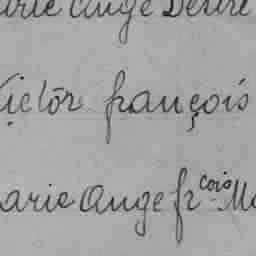 arie Ange Désiré
Victor françois
arie Ange frcois Ma